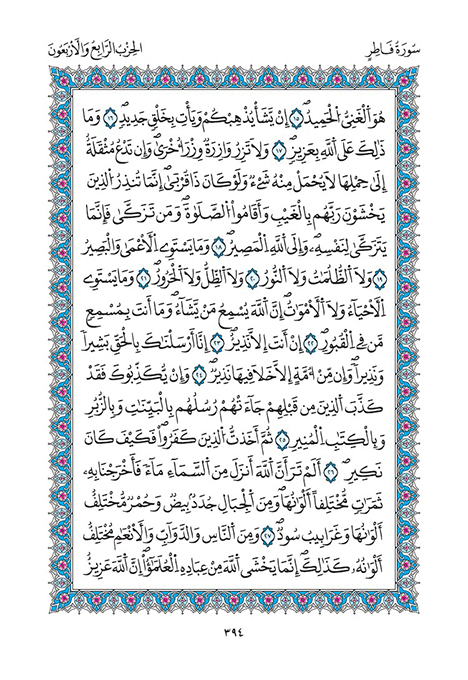 سُورَةُ فَاطِرٍ
الحِزْبُ الرَّابِعُ وَالْأَرْبَعُونَ
هُوَ اَ۬لْغَنِيُّ اُ۬لْحَمِيدُۖ ١٥ إِنْ يَّشَأْ يُذْهِبْكُمْ وَيَأْتِ بِخَلْقٖ جَدِيدٖۖ ١٦ وَمَا
ذَٰلِكَ عَلَى اَ۬للَّهِ بِعَزِيزٖۖ ١٧ وَلَا تَزِرُ وَازِرَةٞ وِزْرَ أُخْر۪ىٰۖ وَإِن تَدْعُ مُثْقَلَةٌ
اِلَىٰ حِمْلِهَا لَا يُحْمَلْ مِنْهُ شَےْءٞ وَلَوْ كَانَ ذَا قُرْب۪ىٰٓۖ إِنَّمَا تُنذِرُ اُ۬لذِينَ
يَخْشَوْنَ رَبَّهُم بِالْغَيْبِ وَأَقَامُواْ اُ۬لصَّلَوٰةَۖ وَمَن تَزَكّ۪ىٰ فَإِنَّمَا
يَتَزَكّ۪ىٰ لِنَفْسِهِۦۖ وَإِلَى اَ۬للَّهِ اِ۬لْمَصِيرُۖ ١٨ وَمَا يَسْتَوِے اِ۬لَاعْم۪ىٰ وَالْبَصِيرُ
١٩ وَلَا اَ۬لظُّلُمَٰتُ وَلَا اَ۬لنُّورُ ٢٠ وَلَا اَ۬لظِّلُّ وَلَا اَ۬لْحَرُورُۖ ٢١ وَمَا يَسْتَوِے
اِ۬لَاحْيَآءُ وَلَا اَ۬لَامْوَٰتُۖ إِنَّ اَ۬للَّهَ يُسْمِعُ مَنْ يَّشَآءُۖ وَمَآ أَنتَ بِمُسْمِعٖ
مَّن فِے اِ۬لْقُبُورِۖ ٢٢ إِنَ اَنتَ إِلَّا نَذِيرٌۖ ٢٣ اِنَّآ أَرْسَلْنَٰكَ بِالْحَقِّ بَشِيراٗ
وَنَذِيراٗۖ وَإِن مِّنُ ا۟مَّةٍ اِلَّا خَلَا فِيهَا نَذِيرٞۖ ٢٤ وَإِنْ يُّكَذِّبُوكَ فَقَدْ
كَذَّبَ اَ۬لذِينَ مِن قَبْلِهِمْ جَآءَتْهُمْ رُسُلُهُم بِالْبَيِّنَٰتِ وَبِالزُّبُرِ
وَبِالْكِتَٰبِ اِ۬لْمُنِيرِۖ ٢٥ ثُمَّ أَخَذتُّ اُ۬لذِينَ كَفَرُواْۖ فَكَيْفَ كَانَ
نَكِيرِۖ ٢٦ أَلَمْ تَرَ أَنَّ اَ۬للَّهَ أَنزَلَ مِنَ اَ۬لسَّمَآءِ مَآءٗ فَأَخْرَجْنَا بِهِۦ
ثَمَرَٰتٖ مُّخْتَلِفاً اَلْوَٰنُهَاۖ وَمِنَ اَ۬لْجِبَالِ جُدَدُۢ بِيضٞ وَحُمْرٞ مُّخْتَلِفٌ
اَلْوَٰنُهَا وَغَرَابِيبُ سُودٞۖ ٢٧ وَمِنَ اَ۬لنَّاسِ وَالدَّوَآبِّ وَالَانْعَٰمِ مُخْتَلِفٌ
اَلْوَٰنُهُۥ كَذَٰلِكَۖ إِنَّمَا يَخْشَى اَ۬للَّهَ مِنْ عِبَادِهِ اِ۬لْعُلَمَٰٓؤُاْۖ اِنَّ اَ۬للَّهَ عَزِيزٌ
٣٩٤